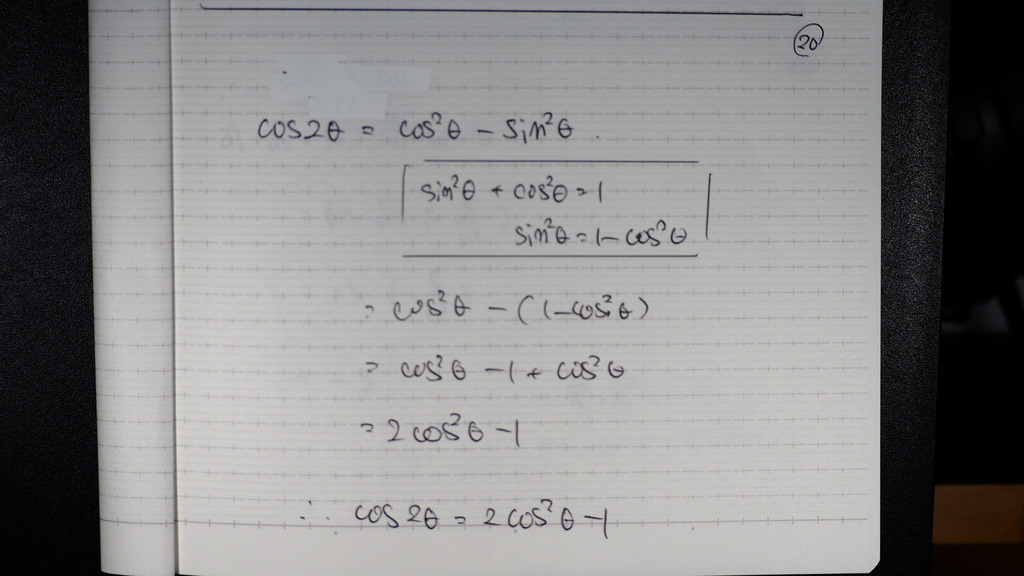 20
cos2θ = cos²θ - sin²θ.
sin²θ + cos²θ = 1
sin²θ = 1 - cos²θ
= cos²θ - (1 - cos²θ)
= cos²θ - 1 + cos²θ
= 2cos²θ - 1
∴ cos2θ = 2cos²θ - 1